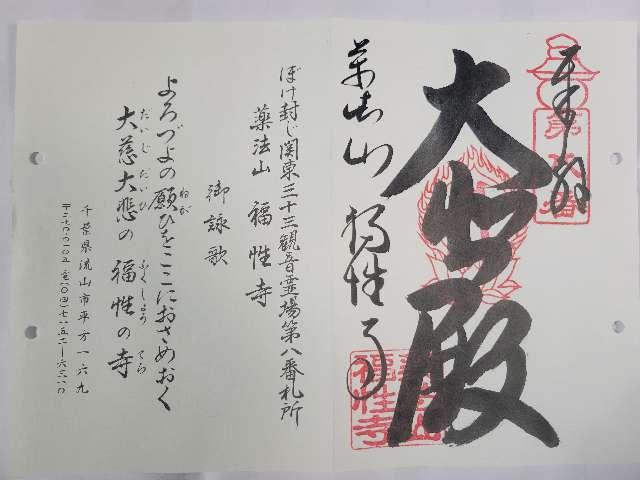 奉拝
第八番
大悲殿
薬法山 福性寺
福性寺
ぼけ封じ関東三十三観音霊場第八番札所
薬法山 福性寺
御詠歌
よろづよの願ひをここにおさめおく
ねが
大慈大悲の福性の寺
だいじだいひ ふくしょう てら
千葉県流山市平方一六九